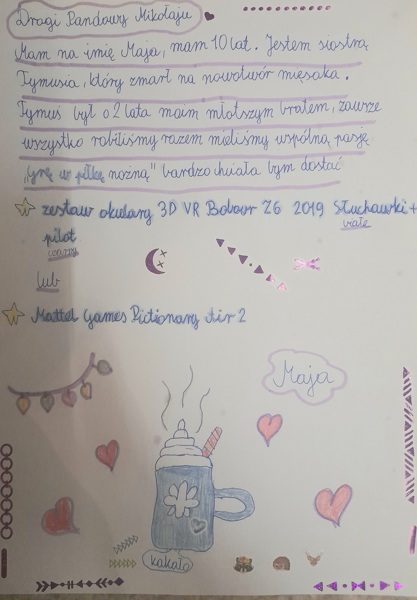 Drogi Pandowy Mikołaju
Mam na imię Maja, mam 10 lat. Jestem siostrą
Tymusia, który zmarł na nowotwór mięsaka.
Tymuś był o 2 lata moim młotszym bratem, zawsze
wszystko robiliśmy razem mieliśmy wspólną pasję
„Grę w piłkę nożną" bardzo chciała bym dostać
zestaw okulary 3D VR Bobovr Z6 2019 Słuchawski +
białe
pilot
czarny
lub
Mattel Games Pictionary Air 2
Maja
kakało